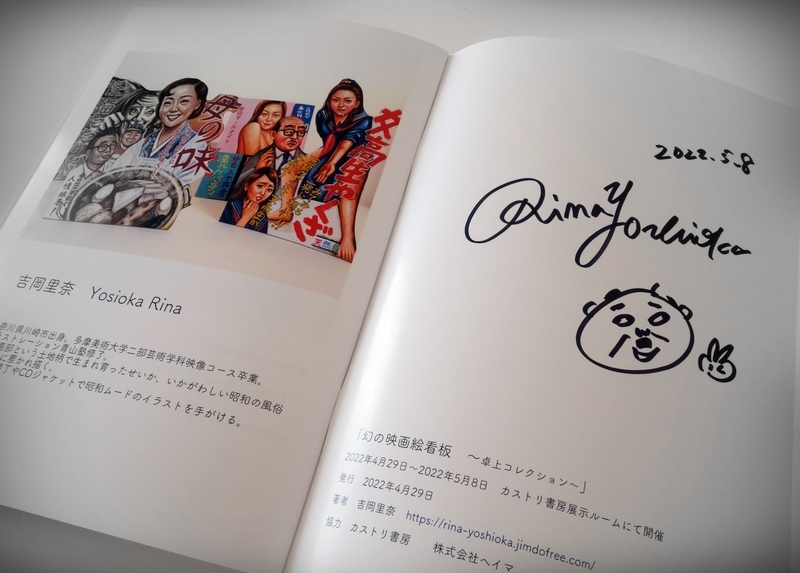 母の味
女高生やくざ
吉岡里奈 Yosioka Rina
奈川県川崎市出身。多摩美術大学二部芸術学科映像コース卒業。
ストレーション青山塾修了。
南部という土地柄で生まれ育ったせいか、いかがわしい昭和の風俗
に惹かれ描く。
丁やCDジャケットで昭和ムードのイラストを手がける。
2022.5.8
Rina Yoshioka
「幻の映画絵看板 ～卓上コレクション～」
2022年4月29日～2022年5月8日 カストリ書房展示ルームにて開催
発行 2022年4月29日
著者 吉岡里奈 https://rina-yoshioka.jimdofree.com/
協力 カストリ書房 株式会社ヘイマ